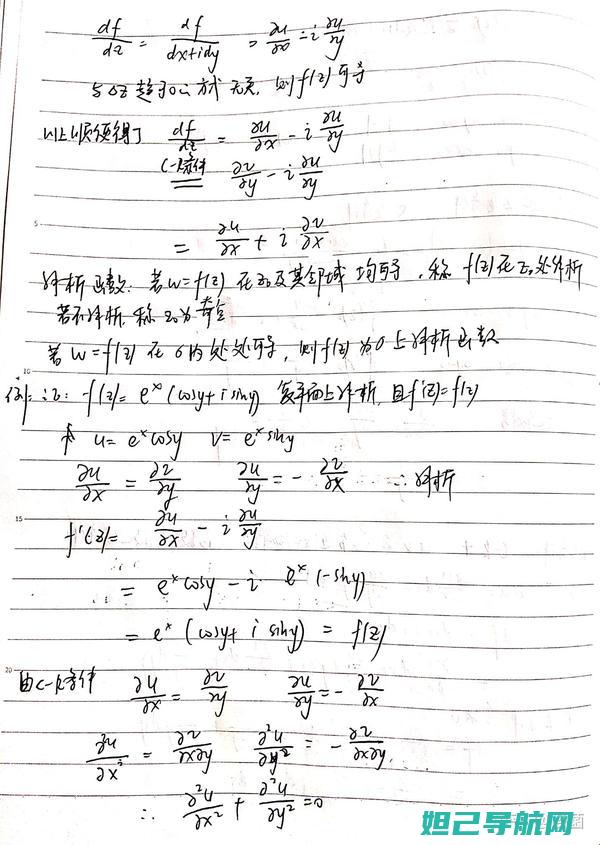 df/dz = df/(dx+idy) = ∂u/∂x - i ∂u/∂y
与Δz趋于0的方式无关, 则f(z)可导
以上顺便得了 df/dz = ∂u/∂x - i ∂u/∂y
C-R条件 ∂v/∂y - i ∂u/∂y
5
= ∂u/∂x + i ∂v/∂x
解析函数: 若w=f(z) 在z₀及其邻域均可导, 称 f(z)在z₀处解析
若不解析, 称z₀为奇点
若 w=f(z) 在 σ内处处可导, 则f(z)为σ上解析函数
10
例: 证: f(z)= eˣ(cosy+isiny) 复平面上解析, 且f'(z)=f(z)
u= eˣcosy v= eˣsiny
∂u/∂x = ∂v/∂y ∂u/∂y = - ∂v/∂x ∴解析
15
f'(z)= ∂u/∂x - i ∂u/∂y
= eˣcosy - i eˣ(-siny)
= eˣ(cosy+ i siny) = f(z)
20
由C-R条件 ∂u/∂x = ∂v/∂y ∂u/∂y = - ∂v/∂x
∂²u/∂x² = ∂v/∂x∂y ∂²u/∂y² = - ∂v/∂x∂y.
∴ ∂²u/∂x² + ∂²u/∂y² =0
妲己导航网